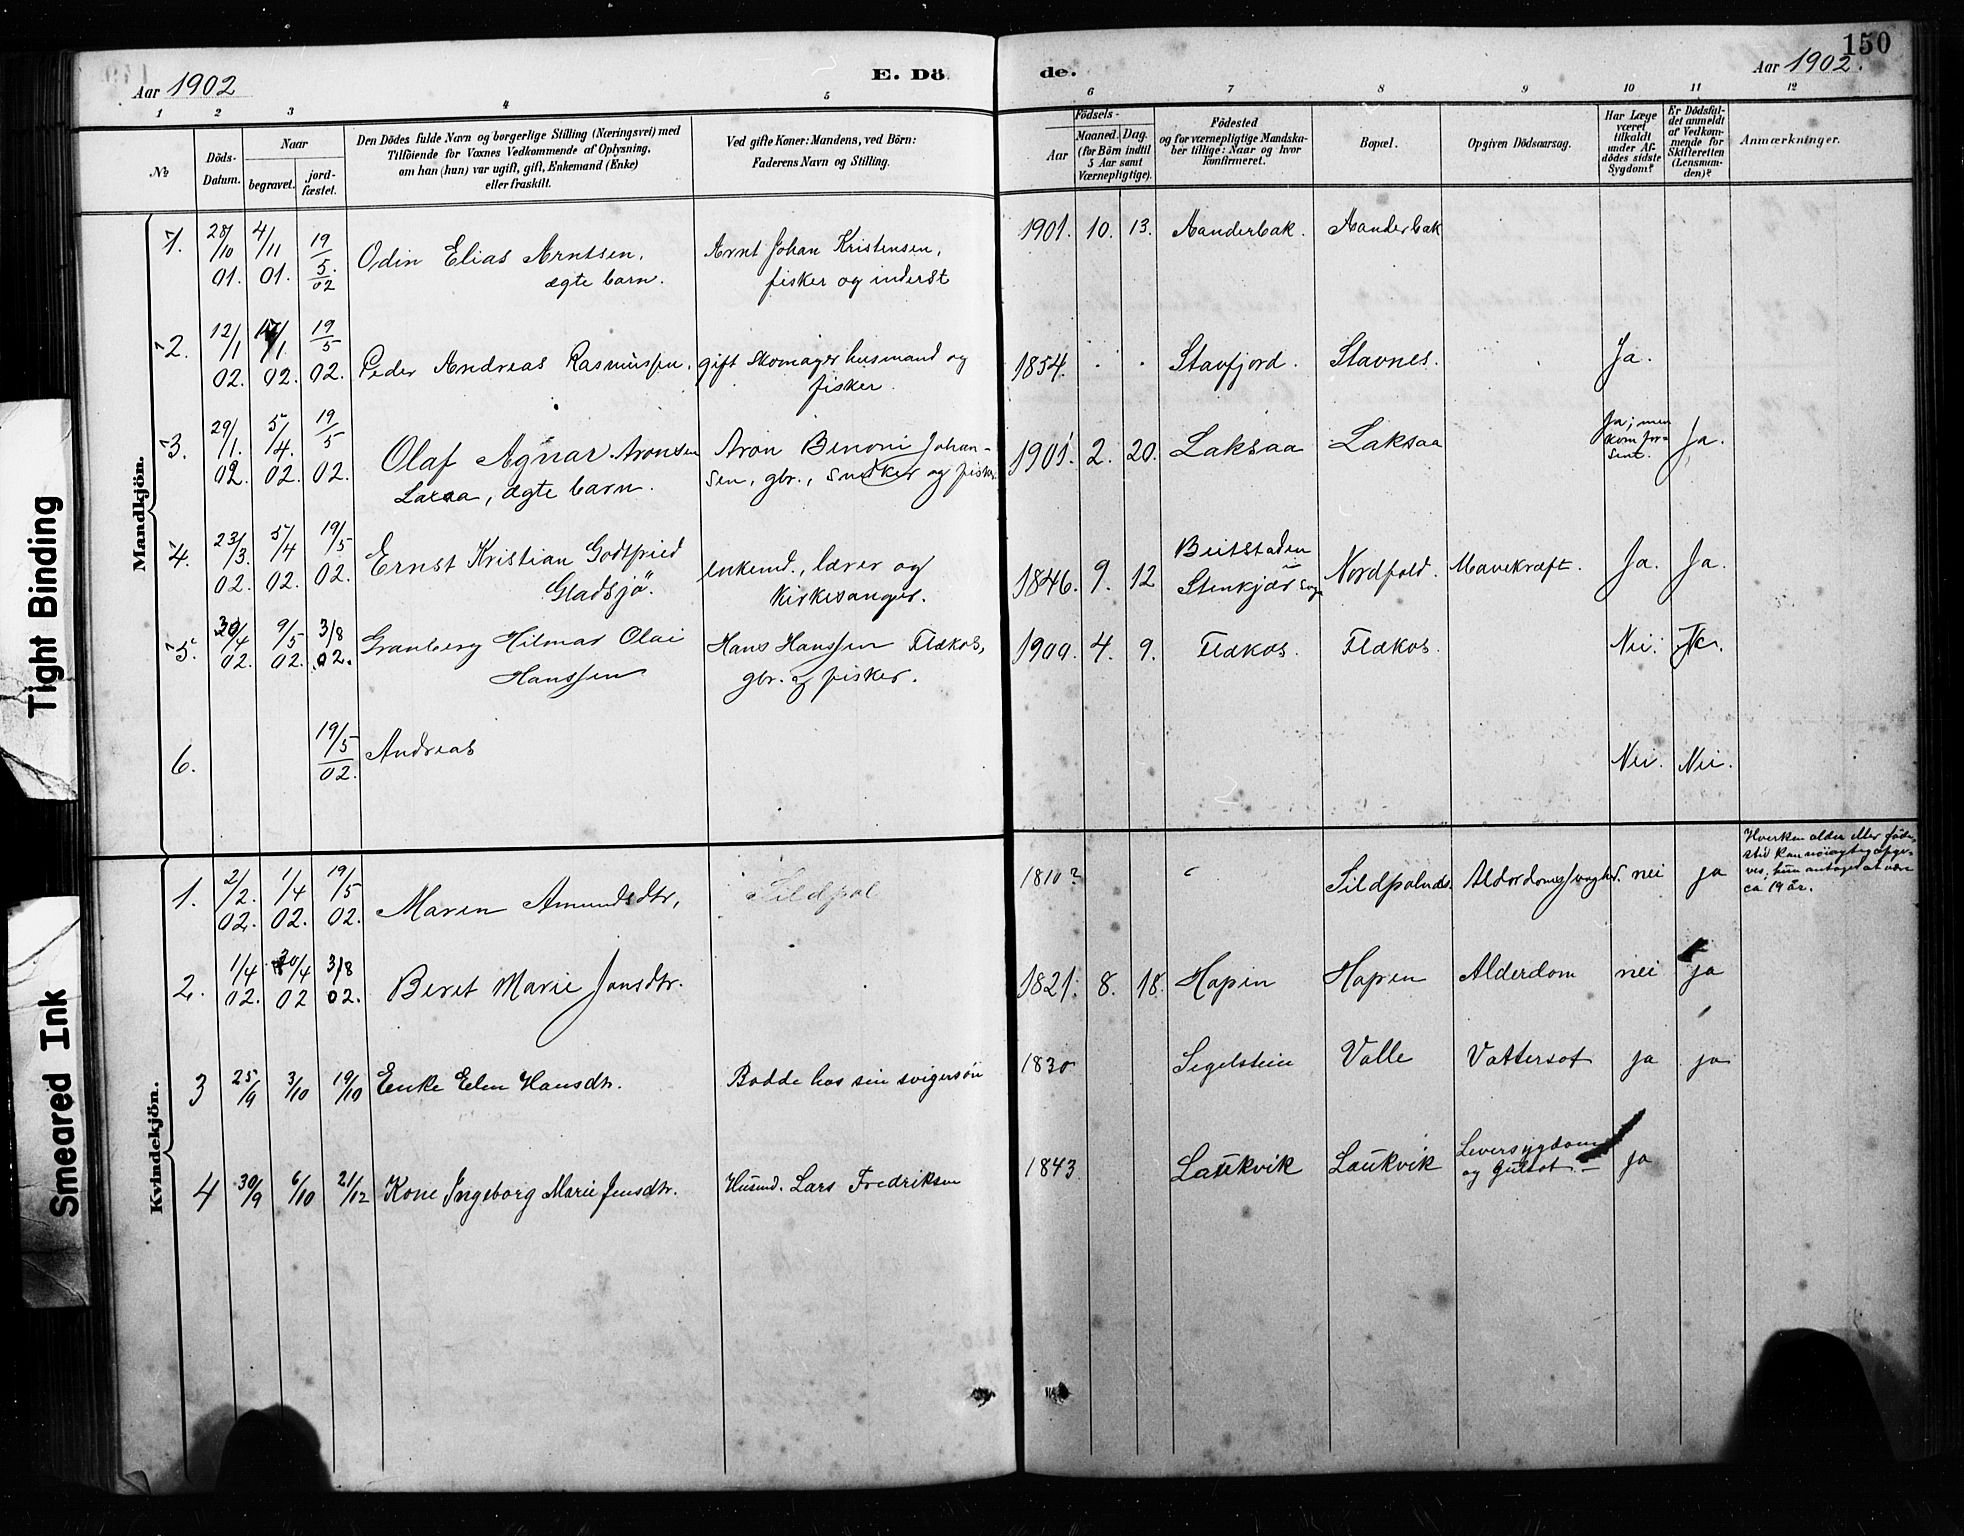 150
Aar 1902
E. Dö
de.
Aar 1902.
1 2 3 4 5 6 7 8 9 10 11 12
№
Döds-
Datum.
Naar
begravet.
jord-
fæstet.
Den Dödes fulde Navn og borgerlige Stilling (Næringsvei) med
Tilföiende for Voxnes Vedkommende af Oplysning,
om han (hun) var ugift, gift, Enkemand (Enke)
eller fraskilt.
Ved gifte Koner: Mandens, ved Börn:
Faderens Navn og Stilling.
Födsels-
Aar
Maaned. Dag.
(for Börn indtil
5 Aar samt
Værnepligtige).
Födested
og for værnepligtige Mandska-
ber tillige: Naar og hvor
konfirmeret.
Bopæl.
Opgiven Dödsaarsag.
Har Læge
været
tilkaldt
under Af-
dödes sidste
Sygdom?
Er Dödsfal-
det anmeldt
af Vedkom-
mende for
Skifteretten
(Lensman-
den)?
Anmærkninger.
Mandkjön.
1. 28/10 01. 4/11 01. 19/5 02 Odin Elias Arntsen, Arnt Johan Kristensen, 1901. 10. 13. Aanderbak. Aanderbak
ægte barn. fisker og inderst
2. 12/1 02. 02. 19/5 02. Peder Andreas Rasmussen, gift Skomager husmand og 1854. Stavfjord. Stavnes. Ja.
fisker.
3. 29/1. 02. 5/4. 02. 19/5 02. Olaf Agnar Aronsen Aron Benoni Johan- 1901. 2. 20. Laksaa Laksaa Ja; men Ja.
kom for
sent.
Laxaa, ægte barn. sen, gbr., snedker og fisker
4. 23/3. 02. 5/4 02. 19/5 02. Ernst Kristian Godtfried enkemd., lærer og 1846. 9. 12 Beitstaden Nordfold. Mavekræft. Ja. Ja.
Gladsjö. kirkesanger. Stenkjær
5. 30/4 02. 9/5 02. 3/8 02. Granberg Hilmar Olai Hans Hanssen Flækos, 1900. 4. 9. Flækos. Flækos. Nei. Ja.
Hanssen gbr. og fisker.
6. 19/5 02. Andreas Nei. Nei.
Kvindekjön.
1. 2/2. 02. 1/4 02. 19/5 02. Maren Amundsdtr, Sildpol 1810? Sildpolnæs. nei ja
Hverken alder eller föde-
sted kan nöiagtig opgi-
ves; hun antoges at være
ca 19 år.
2. 1/4 02. 02 3/8 02. Beret Marie Jonsdtr. 1821. 8. 18. Hopen Hopen Alderdom nei ja
3 25/9 3/10 19/10 Enke Elen Hansdtr. Bodde hos sin svigersön 1830 Segelstein Valle Vattersot ja ja
4 30/9 6/10 21/12 Kone Ingeborg Marie Jensdtr. Husmd. Lars Fredriksen 1843 Laukvik Laukvik Leversygdom ja
og Gulsot
Tight Binding
Smeared Ink